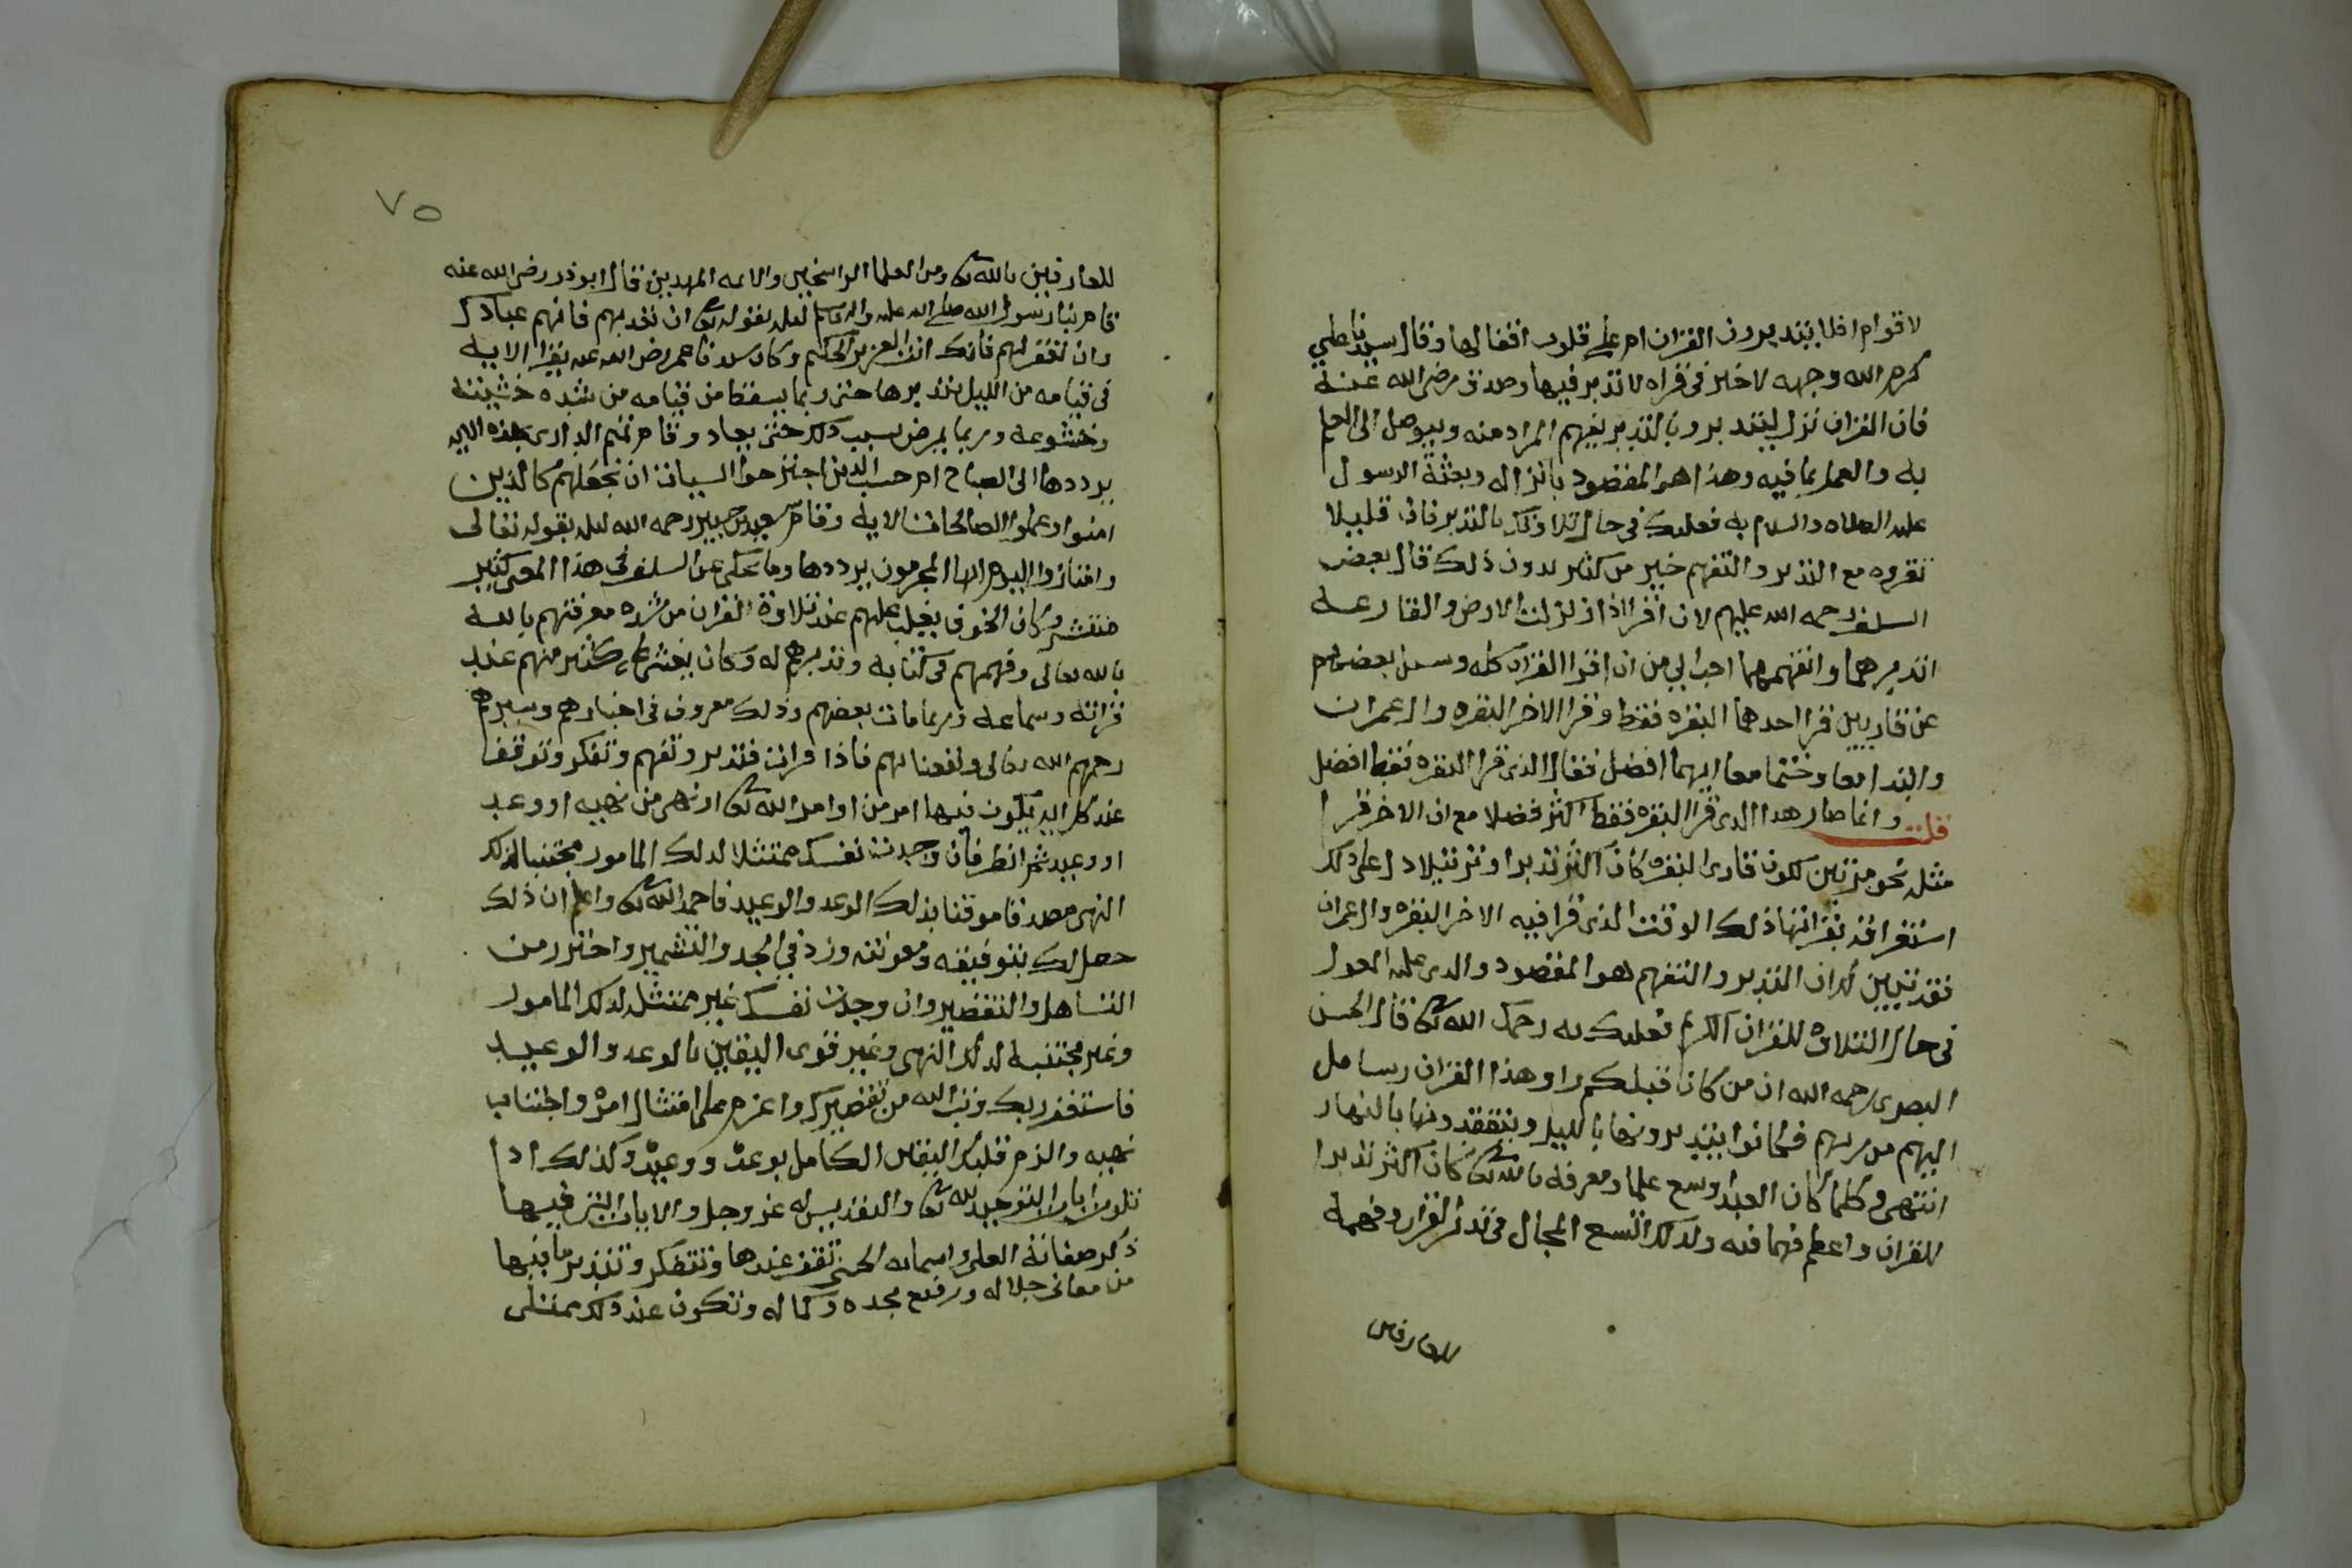 لاقوام افلا يتدبرون القران ام على قلوب اقفالها وقال سيدنا علي
كرم الله وجهه لا خير في قراه لا تدبر فيها وصدق رضي الله عنه
فان القران نزل ليتدبر وبالتدبر يفهم المراد منه ويوصل الى العلم
به والعمل بما فيه وهذا هو المقصود بانزاله وبعثة الرسول
عليه الصلاه والسلام به فعليك في حال تلاوتك بالتدبر فان قليلا
تقروه مع التدبر والتفهم خير من كثير بدون ذلك قال بعض
السلف رحمه الله عليهم لان اقرا اذا زلزلت الارض والقارعه
اتدبرهما واتفهمهما احب الي من ان اقرا القران كله وسيل بعضهم
عن قاريين قرا احدهما البقره فقط وقرا الاخر البقره وال عمران
وابتدا معا وختما معا ايهما افضل فقال الذي قرا البقره فقط افضل
قلت وانما صار هذا الذي قرا البقره فقط اكثر فضلا مع ان الاخر قرا
مثله نحو مرتين لكون قارى البقره كان اكثر تدبرا وترتيلا دل على ذلك
استغراقه بقراتها ذلك الوقت الذي قرا فيه الاخر البقره وال عمران
فقد تبين لك ان التدبر والتفهم هو المقصود والذي عليه المعول
في حال التلاوه للقران الكريم فعليك به رحمك الله تعالى قال الحسن
البصري رحمه الله ان من كان قبلكم راو هذا القران رسايل
اليهم من ربهم فكانوا يتدبرونها بالليل ويتفقدونها بالنهار
انتهى وكلما كان العبد اوسع علما ومعرفه بالله تعالى كان اكثر تدبرا
للقران واعظم فهما فيه ولذلك اتسع المجال في تدبر القران وفهمه
للعارفين
٧٥
للعارفين بالله تعالى ومن العلما الراسخين والايمه المهديين قال ابو ذر رضي الله عنه
قام بنا رسول الله صلى الله عليه واله وسلم ليله بقوله تعالى ان تعذبهم فانهم عبادك
وان تغفر لهم فانك انت العزيز الحكيم وكان سيدنا عمر رضي الله عنه يقرا الايه
في قيامه من الليل يتدبرها حتى ربما يسقط من قيامه من شده خشيته
وخشوعه وربما يمرض بسبب ذلك حتى يعاد وقام تميم الداري بهذه الايه
يرددها الى الصباح ام حسب الذين اجترحوا السيات ان نجعلهم كالذين
امنوا وعملوا الصالحات الايه وقام سعيد بن جبير رحمه الله ليله بقوله تعالى
وامتازوا اليوم ايها المجرمون يرددها وما يحكى عن السلف في هذا المعنى كثير
منتشر وكان الخوف يغلب عليهم عند تلاوة القران من شده معرفتهم بالله
بالله تعالى وفهمهم في كتابه وتدبرهم له وكان يغشى على كثير منهم عند
قراته وسماعه وربما مات بعضهم وذلك معروف في اخبارهم وسيرهم
رحمهم الله تعالى ونفعنا بهم فاذا قرات فتدبر وتفهم وتفكر وتوقف
عند كل ايه يكون فيها امر من اوامر الله تعالى او نهى من نهيه او وعد
او وعيد ثم انظر فان وجدت نفسك ممتثلا لذلك المامور مجتنبا لذلك
النهي مصدقا موقنا بذلك الوعد والوعيد فاحمد الله تعالى واعلم ان ذلك
حصل لك بتوفيقه ومعونته وزد في الجد والتشمير واحترز من
التساهل والتقصير وان وجدت نفسك غير ممتثل لذلك المامور
وغير مجتنبه لذلك النهي وغير قوى اليقين بالوعد والوعيد
فاستغفر ربك وتب الله من تقصيرك واعزم على امتثال امره واجتناب
نهيه والزم قلبك اليقين الكامل بوعده ووعيده وكذلك اذا
تلوت ايات التوحيد لله تعالى والتقديس له عز وجل والايات التي فيها
ذكر صفاته العلى واسمايه الحسنى تقف عندها وتتفكر وتتدبر ما فيها
من معاني جلاله ورفيع مجده وكماله وتكون عند ذلك ممتلى